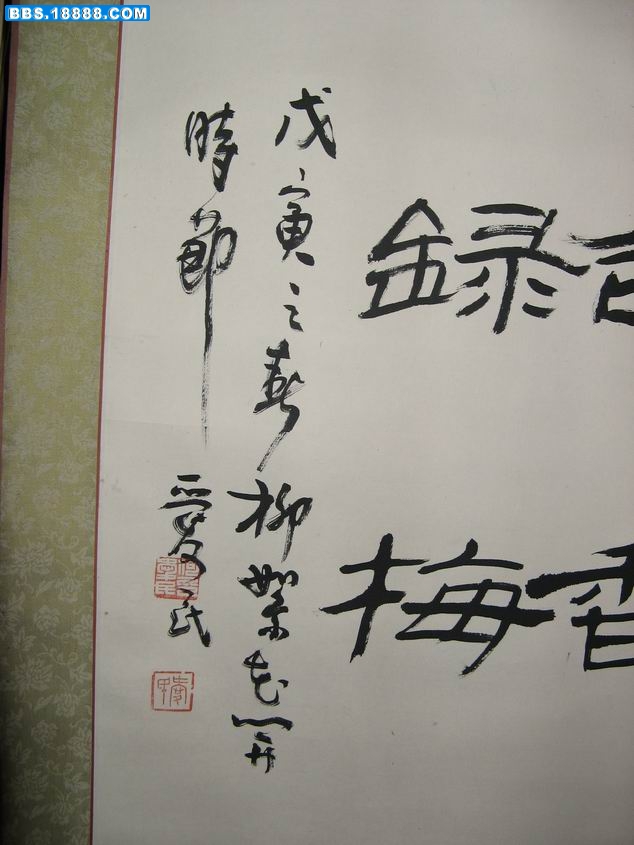 BBS.18888.COM
錄
梅
戊寅之春柳絮花開
時節
愛民